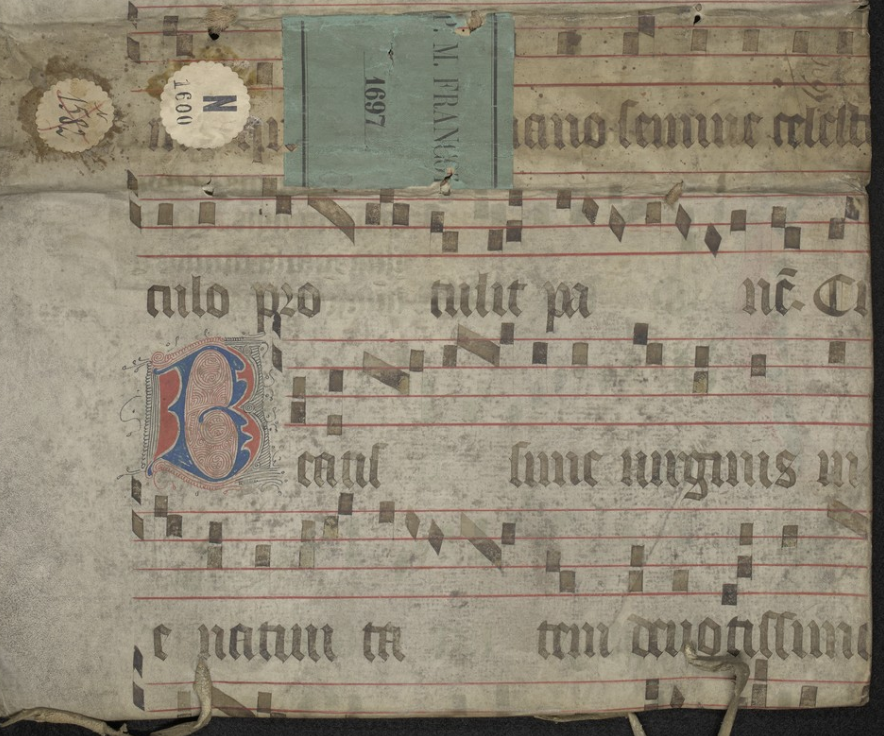 1582
N
1600
G. M. FRANCISC
1697
ano semine celest
culo pro tulit pa nē. Cu
Beatissime virginis m
e natiui ta tem deuotissime